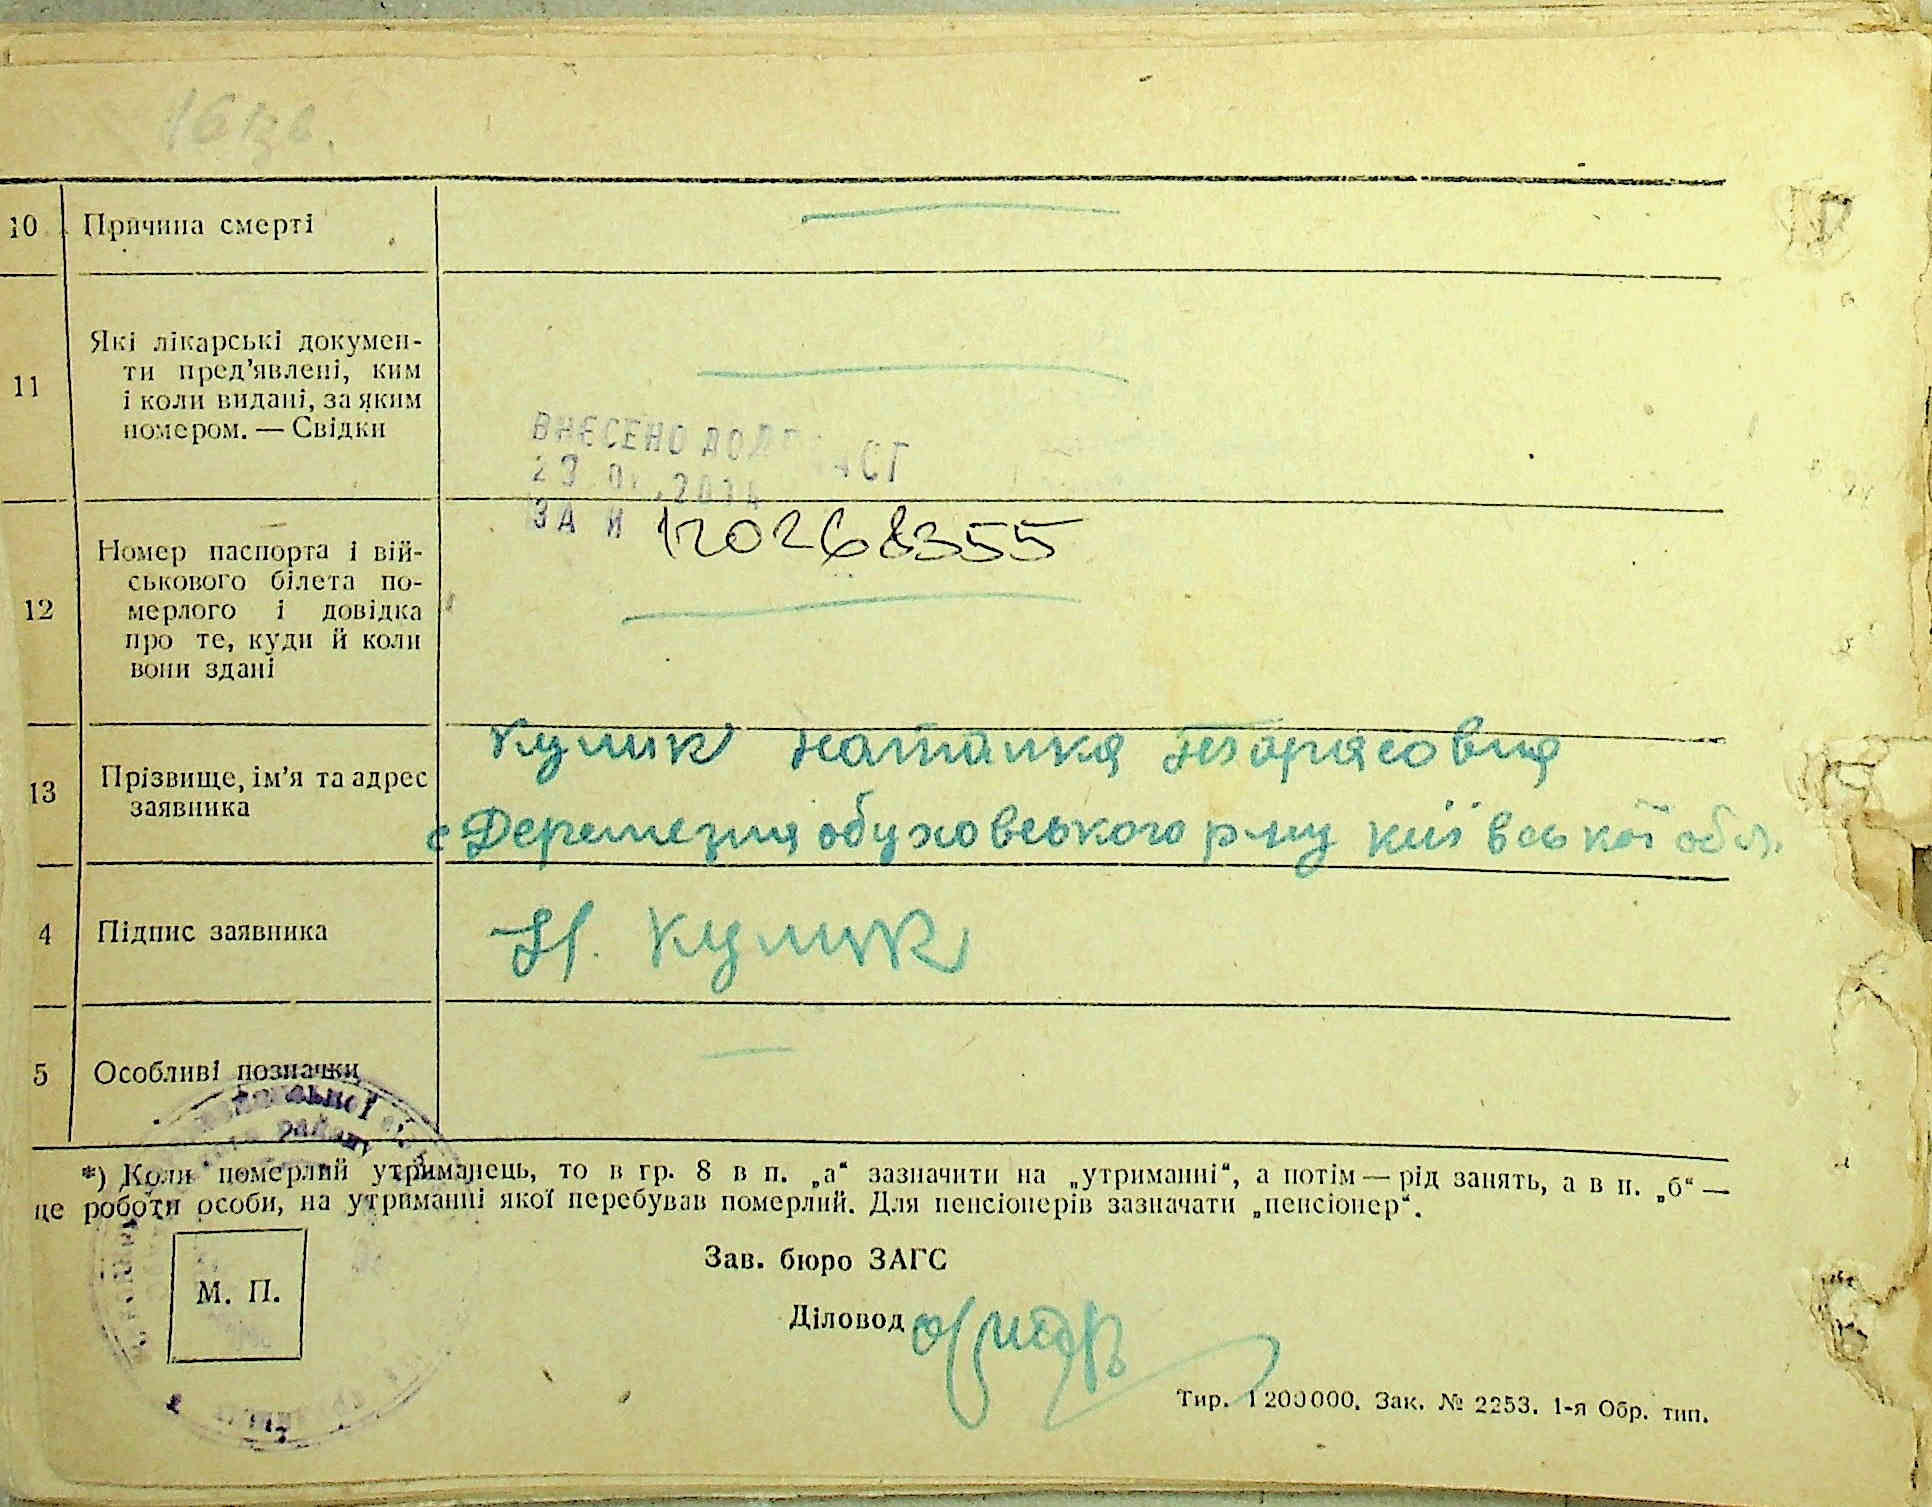 10 Причина смерті
11 Які лікарські докумен-
ти пред’явлені, ким
і коли видані, за яким
номером. — Свідки
ВНЕСЕНО ДО
ЗА №
120268355
12 Номер паспорта і вій-
ськового білета по-
мерлого і довідка
про те, куди й коли
вони здані
13 Прізвище, ім’я та адрес
заявника
Кулик Наталка Тарасовна
с Деремезна обуховського р-ну київської обл.
4 Підпис заявника
Н. Кулик
5 Особливі позначки
району
*) Коли померлий утриманець, то в гр. 8 в п. „а“ зазначити на „утриманні“, а потім — рід занять, а в п. „б“ —
це роботи особи, на утриманні якої перебував померлий. Для пенсіонерів зазначати „пенсіонер“.
М. П.
Зав. бюро ЗАГС
Діловод
Тир. 1 200 000. Зак. № 2253. 1-я Обр. тип.